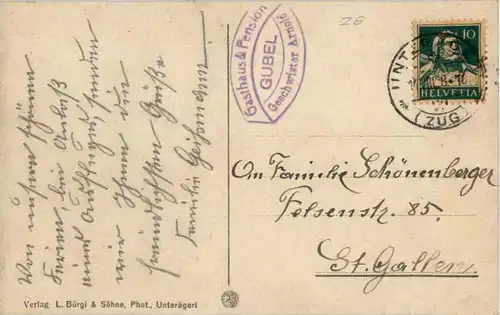 Von unsern schönen
Ferien, bei Anlaß
eines Ausfluges, senden
wir Ihnen die
freundlichsten Grüße
Familie
Gasthaus & Pension
GUBEL
Geschwister Arnold
26
10
HELVETIA
UNTER
(ZUG)
An Familie Schönenberger
Felsenstr. 85.
St. Gallen.
Verlag L. Bürgi & Söhne, Phot., Unterägeri